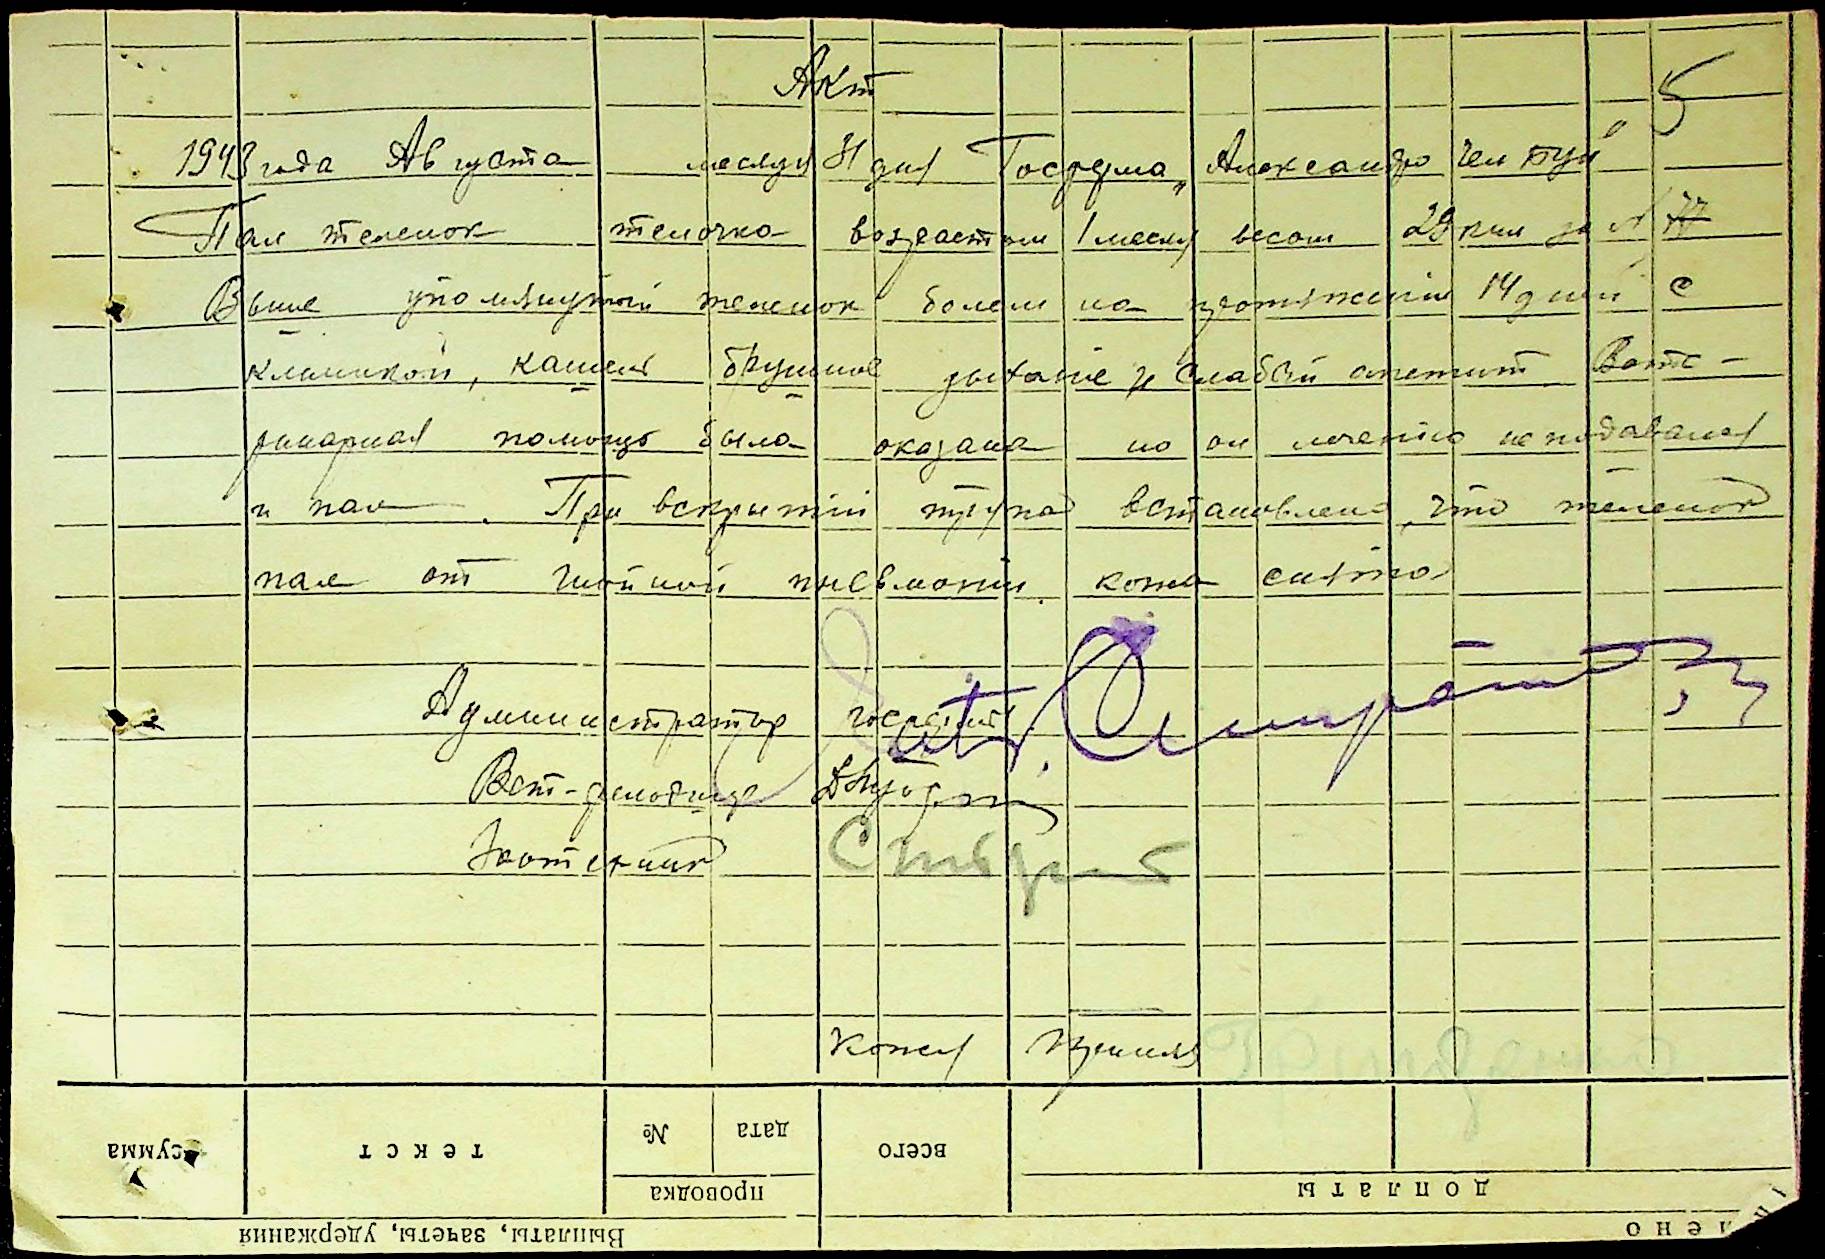 Акт
5
1943 года Августа месяця 31 дня Госферма „Александро Чел Буй"
Пал теленок телочка возрастом 1 месяц весом 29 кил за № 77
Выше упомянутый теленок болел на протяжении 14 дней с
клиникой, кашель брушное дыхание и слабый апетит. Вете-
ринарная помощь была оказана но он лечению неподавался
и пал. При вскрытии трупа встановлено, что теленок
пал от гнойной пневмонии. кожа снята
Администратор
Вет-фельдшер
Зоотехник
Кожу принял
сумма
текст
№
дата
всего
проводка
доплаты
Выплаты, зачеты, удержания
лено